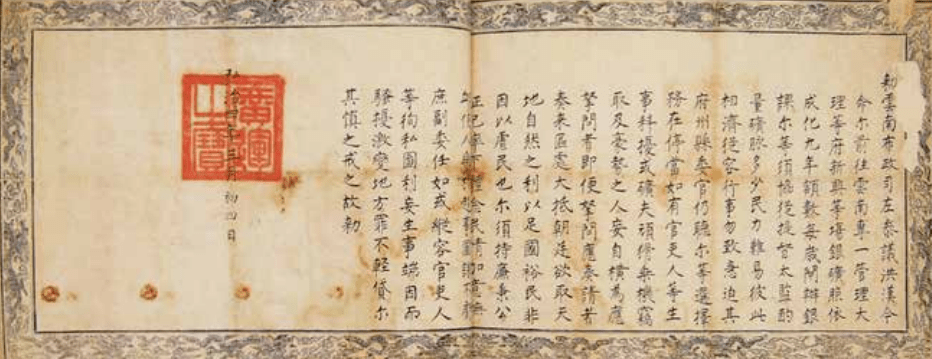 勅雲南布政司左叅議洪漢今
命尓前往雲南專一管理大
理等府新興等塲銀礦照依
成化九年額數每歲閘辦銀
課尓等須恊從提督太監酌
量礦脉多少民力難易彼此
相濟從容行事勿致急迫其
府州縣委官仍聽尓等選擇
務在停當如有官吏人等生
事科擾或礦夫頑乗機竊
取及豪勢之人妄自為應
拏問者即便拏問應奏請者
奏來區處大抵朝廷欲取天
地自然之利以足國裕民非
因以虐民也尓須持廉秉公
正己率
庶副委任如或縱容官吏人
等徇私圖利妄生事端因而
騷擾激變地方罪不輕貸尓
其慎之戒之故勅
弘治四年三月初四日
廣運之寶